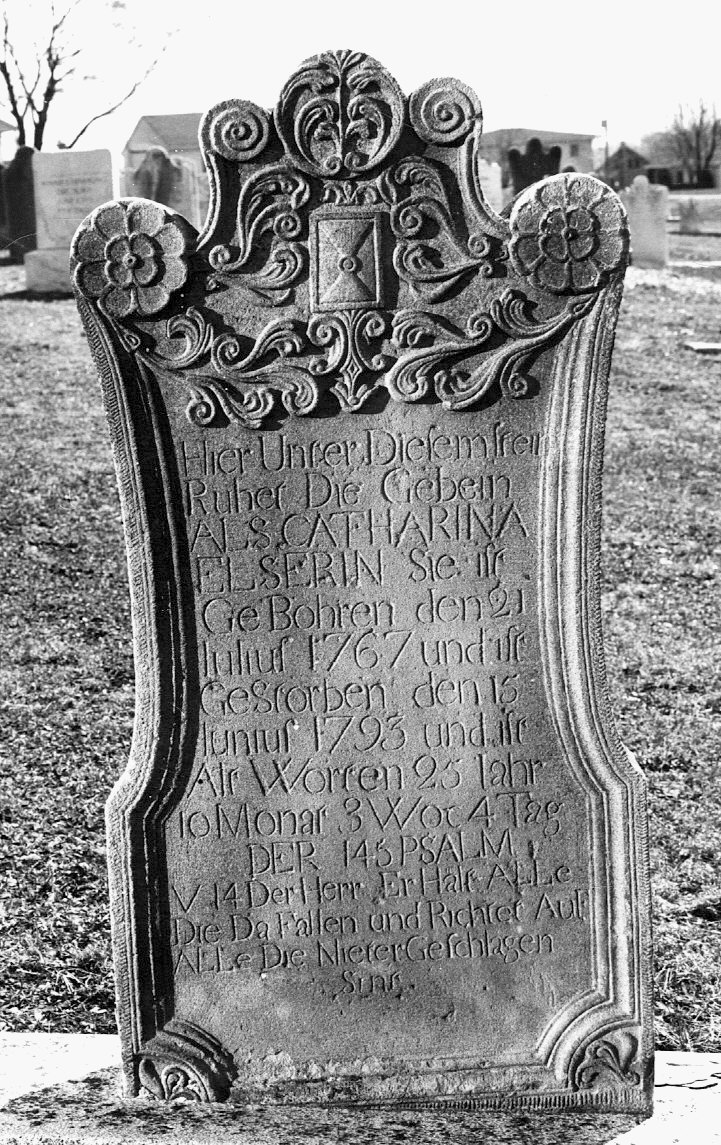 Hier Unter Diesem stein
Ruhet Die Gebein
ALS CATHARINA
ELSERIN Sie ist
GeBohren den 21
Iulius 1767 und ist
Gestorben den 15
Iunius 1793 und ist
Alt Worten 25 Iahr
10 Monat 3 Wot 4 Tag
DER 145 PSALM
V 14 Der Herr ErHalt ALLe
Die Da Fallen und Richtet Auf
ALLe Die Nieter Geschlagen
Sint